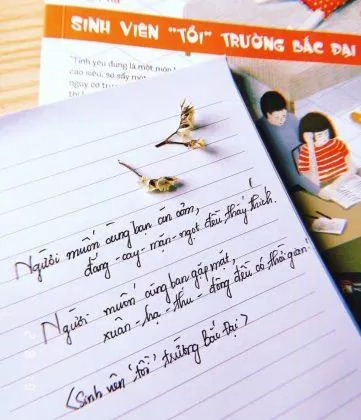 SINH VIÊN "TỒI" TRƯỜNG BẮC ĐẠI
"Tình yêu đúng là một môn
cao siêu, sơ sẩy một
Người muốn cùng bạn ăn cơm,
đắng - cay - mặn - ngọt đều thấy thích.
Người muốn cùng bạn gặp mặt,
xuân - hạ - thu - đông đều có thời gian.
(Sinh viên "tồi" trường bắc đại)